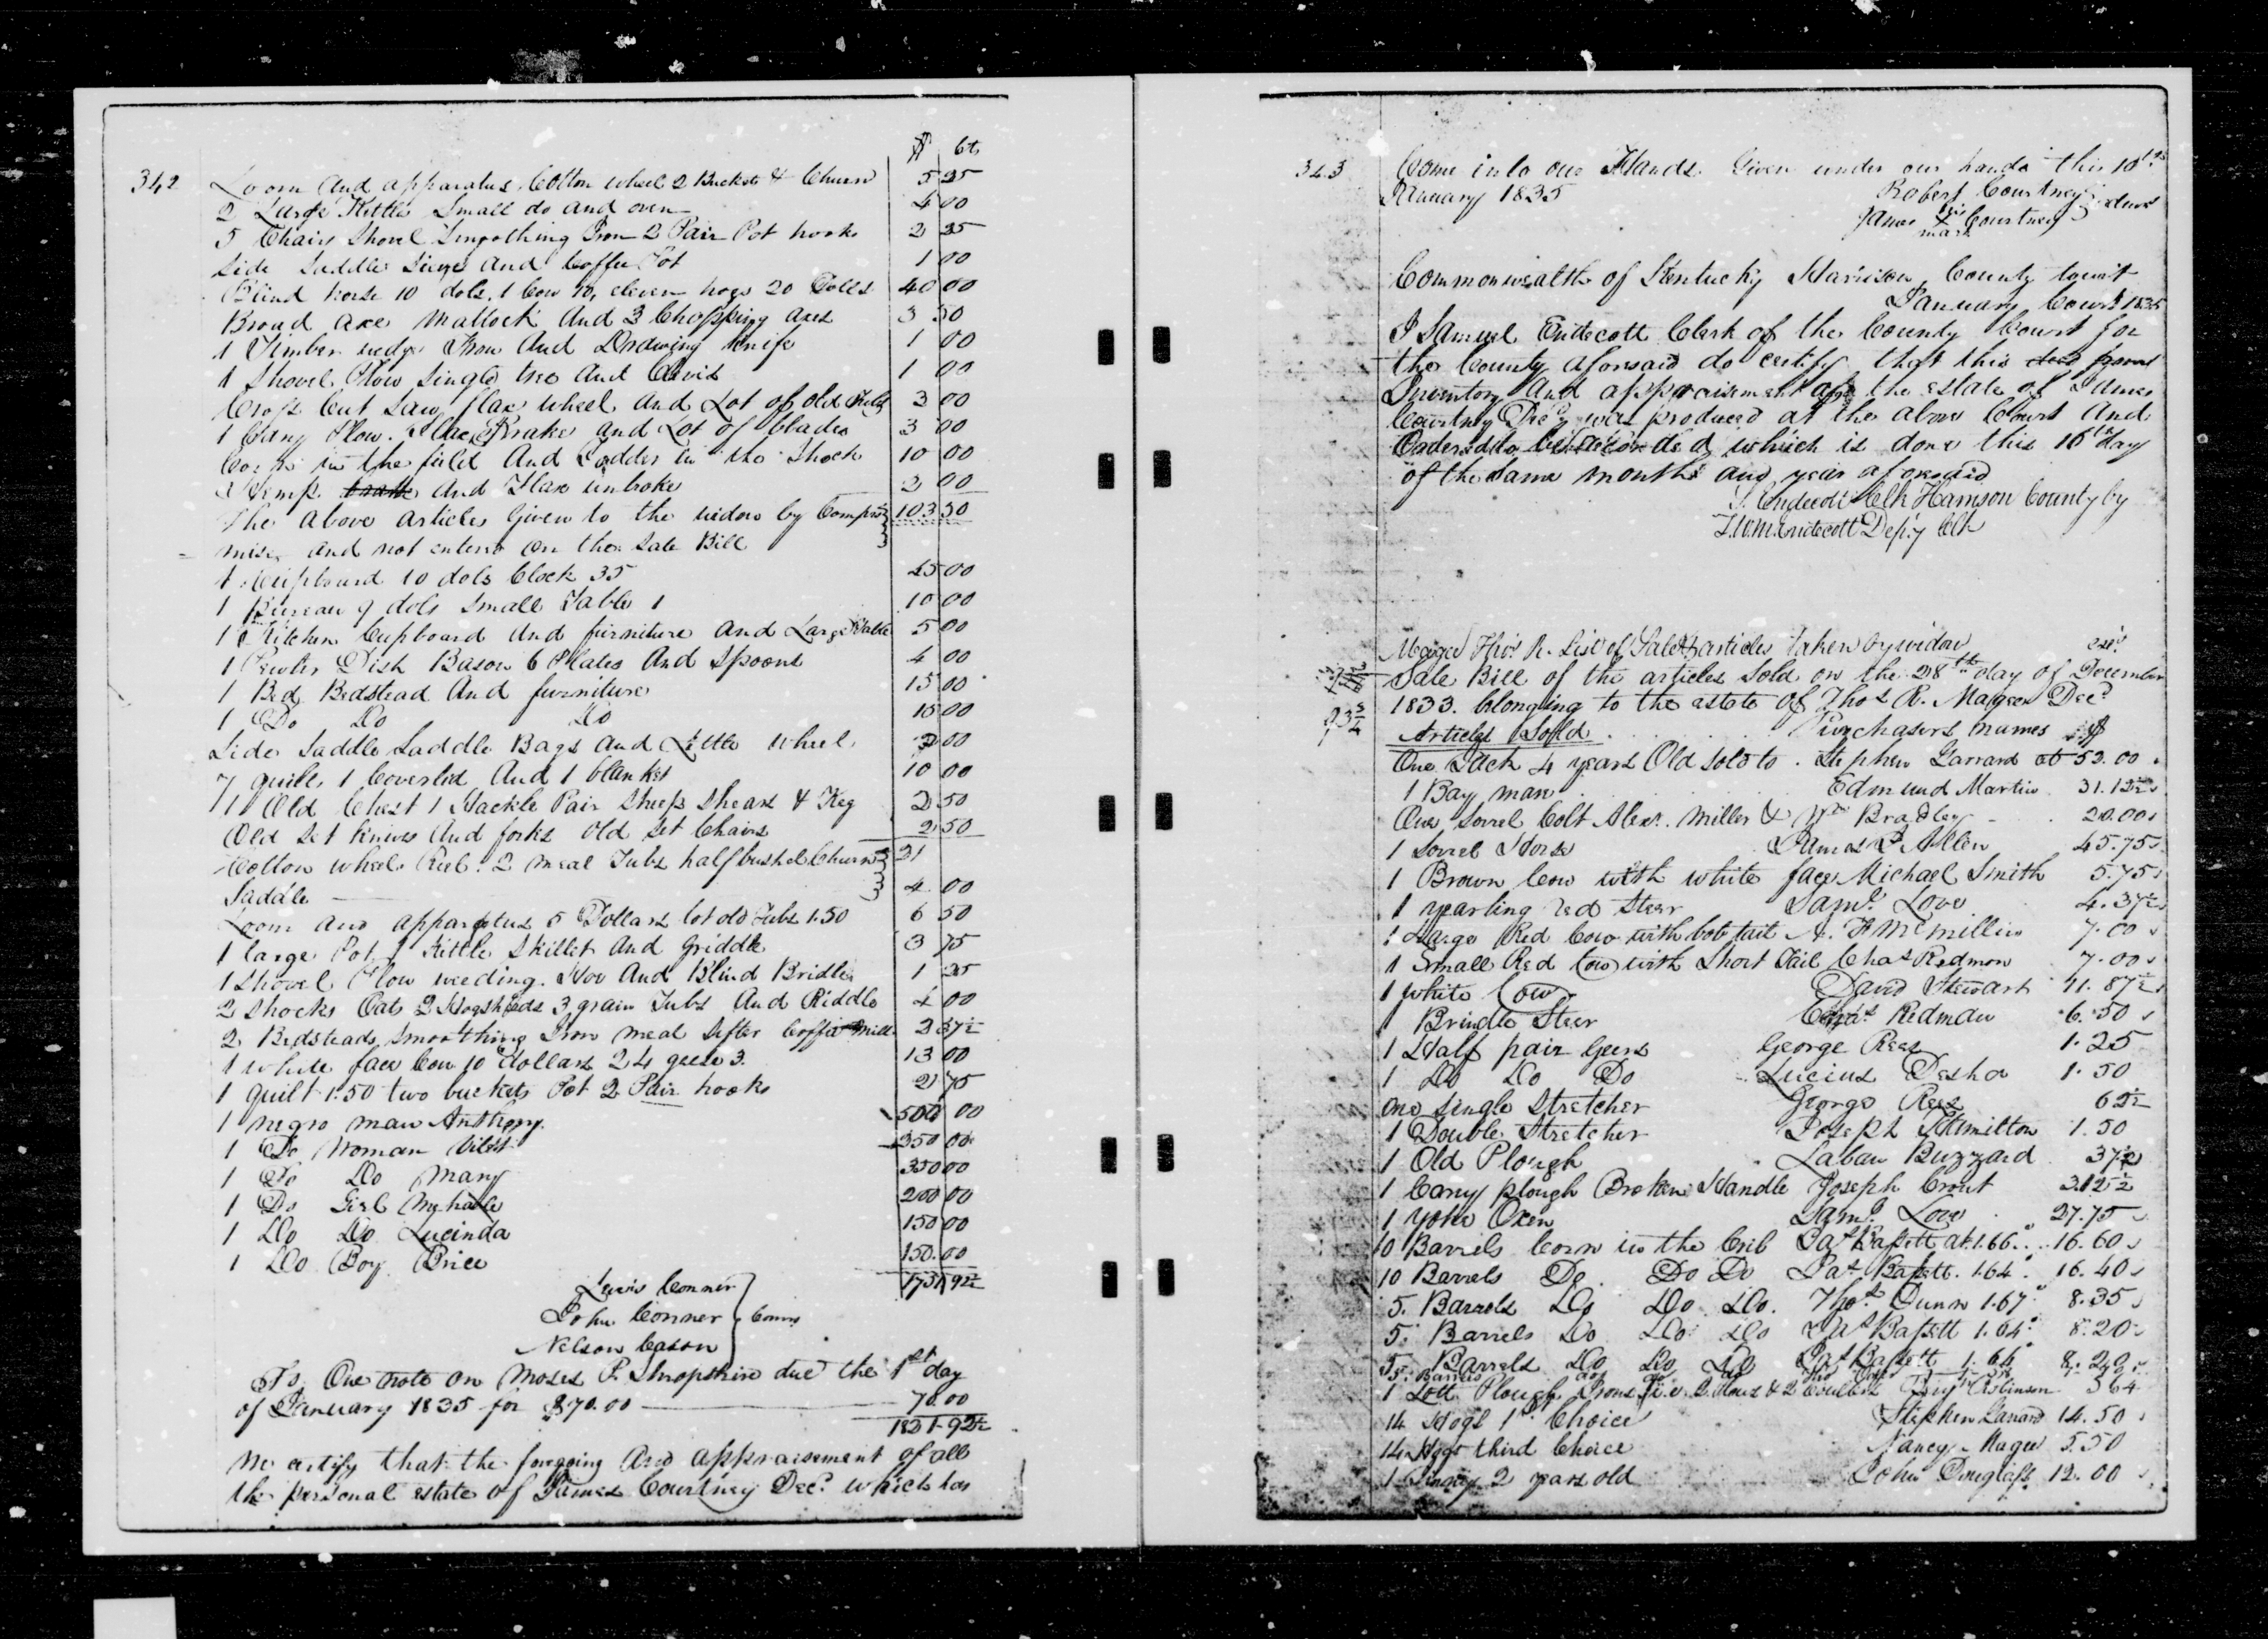 342
$ Cts
Loom And apparatus Cotton wheel 2 Buckets & Churn 5 25
2 Large Kettles Small do and oven 4 00
5 Chairs Shovel Smoothing Iron 2 Pair Pot hooks 2 25
Side Saddle and Coffee Pot 1 00
Blind horse 10 dols. 1 Cow 10, eleven hogs 20 Dolls 40 00
Broad axe Mattock And 3 Chopping axes 3 50
1 Timber Iron And Drawing Knife 1 00
1 Shovel Plow Single tree And Clevis 1 00
Cross Cut Saw flax wheel and Lot of old Tubs 3 00
1 Cary Plow. Flax Brake and Lot of blades 3 00
Corn in the field And Fodder in the Shock 10 00
Hemp and Flax unbroke 2 00
The above articles Given to the widow by Compro 103 50
mise and not entered on the Sale Bill
1 Cupboard 10 dols Clock 35 45 00
1 Bureau 9 dols Small Table 1 10 00
1 Kitchen Cupboard And furniture and Large Table 5 00
1 Pewter Dish Bason 6 Plates And Spoons 4 00
1 Bed Bedstead And furniture 15 00
1 Do Do Do 15 00
Side Saddle Saddle Bags And Little Wheel 3 00
7 quilts 1 Coverlid And 1 blanket 10 00
1 Old Chest 1 Hackle Pair Sheep Shears & Keg 2 50
Old Set Knives And forks old Set Chairs 2 50
Cotton wheel Reel. 2 meal Tubs half bushel Churn 21
Saddle 4 00
Loom and apparatus 5 Dollars lot old Tubs 1.50 6 50
1 large Pot 1 Kettle Skillet And Griddle 3 75
1 Shovel Plow weeding. Hoe And Blind Bridle 1 25
2 Shocks Oats 2 Hogsheads 3 grain Tubs And Riddle 4 00
2 Bedsteads Smoothing Iron meal Sifter Coffee Mill 2 37½
1 white face Cow 10 dollars 24 geese 3. 13 00
1 quilt 1.50 two buckets Pot 2 Pair hooks 2 75
1 negro man Anthony. 500 00
1 Do Woman 350 00
1 Do Do Mary 350 00
1 Do Girl 200 00
1 Do Do Lucinda 150 00
1 Do Boy Price 150.00
Lewis Conner 1751 92½
John Conner Comrs
Nelson Cason
To One note on Moses P. Shropshire due the 1st day
of January 1835 for $70.00 70.00
1821 92½
We certify that the forgoing And appraisement of all
the personal estate of James Courtney Decd. which has
343
Come into our Hands. Given under our hands this 10th
January 1835 Robert Courtney
James his X mark Courtney
Commonwealth of Kentucky Harrison County towit
January Court 1835
I Samuel Endecott Clerk of the County Court for
the County aforesaid do certify that this
Inventory And appraisement of the estate of James
Courtney Decd was produced at the above Court And
Ordered to be recorded which is done this 16th day
of the same month and year aforesaid
S. Endecott Clk Harrison County by
Endecott Depty Clk
Magee Thos R. List of Sale & articles taken by widow
Sale Bill of the articles Sold on the 28th day of December
1833. belonging to the estate of Thos R. Magee Decd.
Articles Sold. Purchasers names $
One Jack 4 years Old Sold to. Stephen Garrard at 53.00
1 Bay mare Edmund Martin 31.12½
One Sorrel Colt Alexr. Miller & Wm Bradley 20.00
1 Sorrel Horse James P. Allen 45.75
1 Brown Cow with white face Michael Smith 5.75
1 yearling red Steer Saml. Love 4.37½
1 Large Red Cow with bob tail A. F McMillin 7.00
1 Small Red Cow with Short Tail Chas Redmon 7.00
1 White Cow David Stewart 11.87½
1 Brindle Steer Chas Redmon 6.50
1 Half pair Geers George Rees 1.25
1 Do Do Do Lucius Desha 1.50
One Single Stretcher George Rees 62½
1 Double Stretcher Joseph Hamilton 1.50
1 Old Plough Laban Buzzard 37½
1 Cary plough Broken Handle Joseph Crout 3.12½
1 Yoke Oxen Saml. Love 27.75
10 Barrels Corn in the Crib Jas Bassett at 1.66. 16.60
10 Barrels Do. Do Do Jas Bassett. 1.64. 16.40
5. Barrels Do Do Do. Thos. Dunn 1.67 8.35
5. Barrels Do Do Do Jas Bassett 1.64. 8.20
5. Barrels Do Do Do Jas Bassett 1.64 8.20
1 Lott Plough Irons 3 64
14 Hogs 1st Choice Stephen Garrard 14.50
14 Hogs third Choice Nancy Magee 5.50
1 2 years old John Douglass 12.00